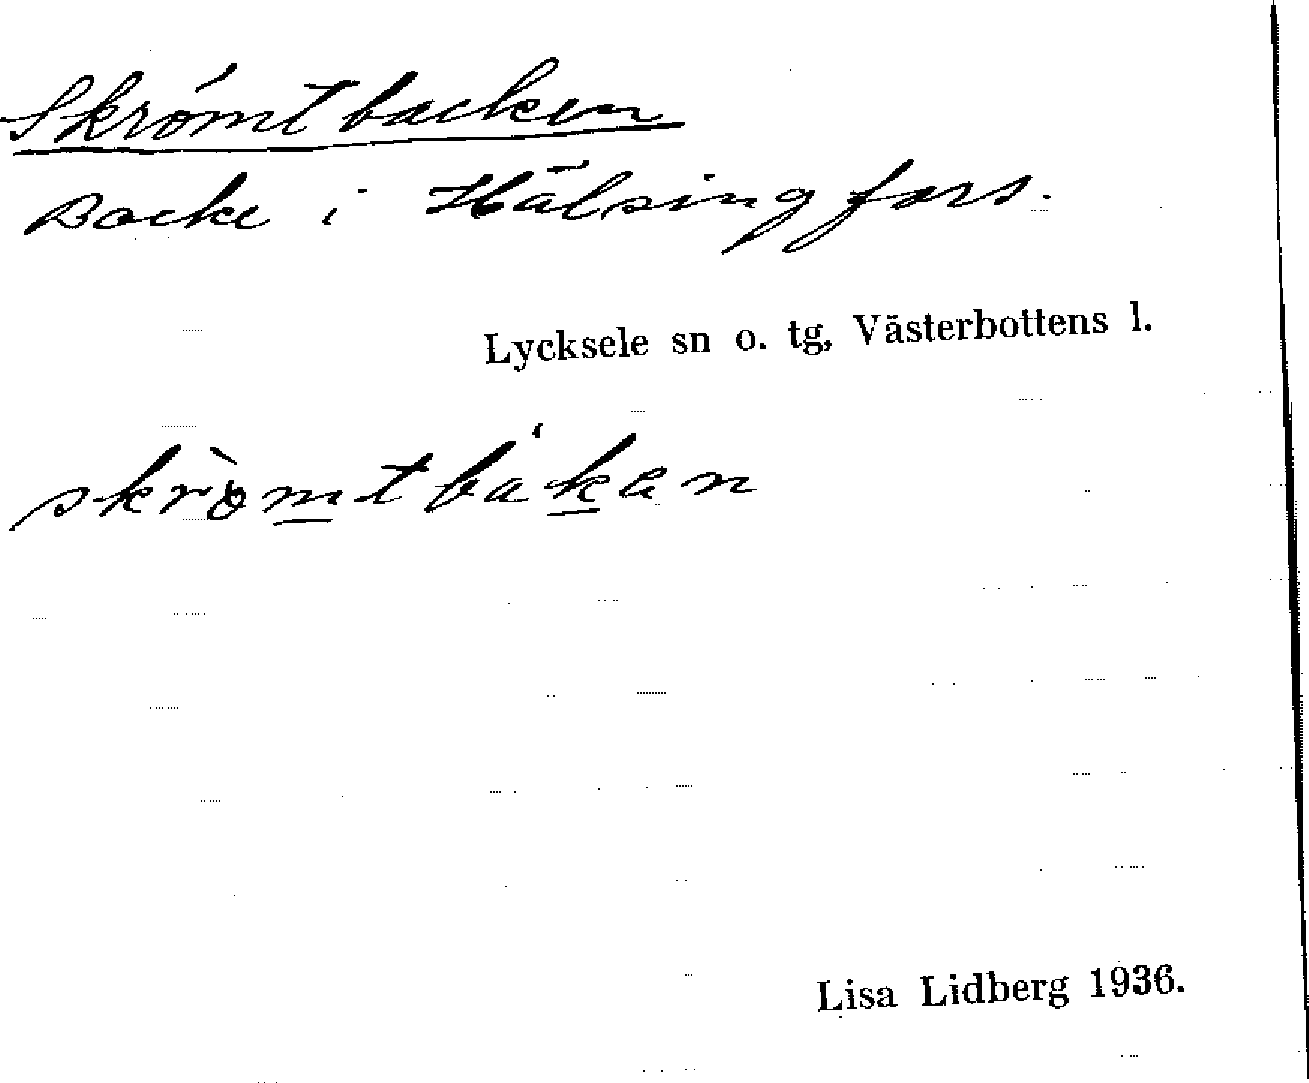 Skrömtbacken
Backe i Hälsingfors.
Lycksele sn o. tg, Västerbottens l.
skrò̱mtbáḵen
Lisa Lidberg 1936.